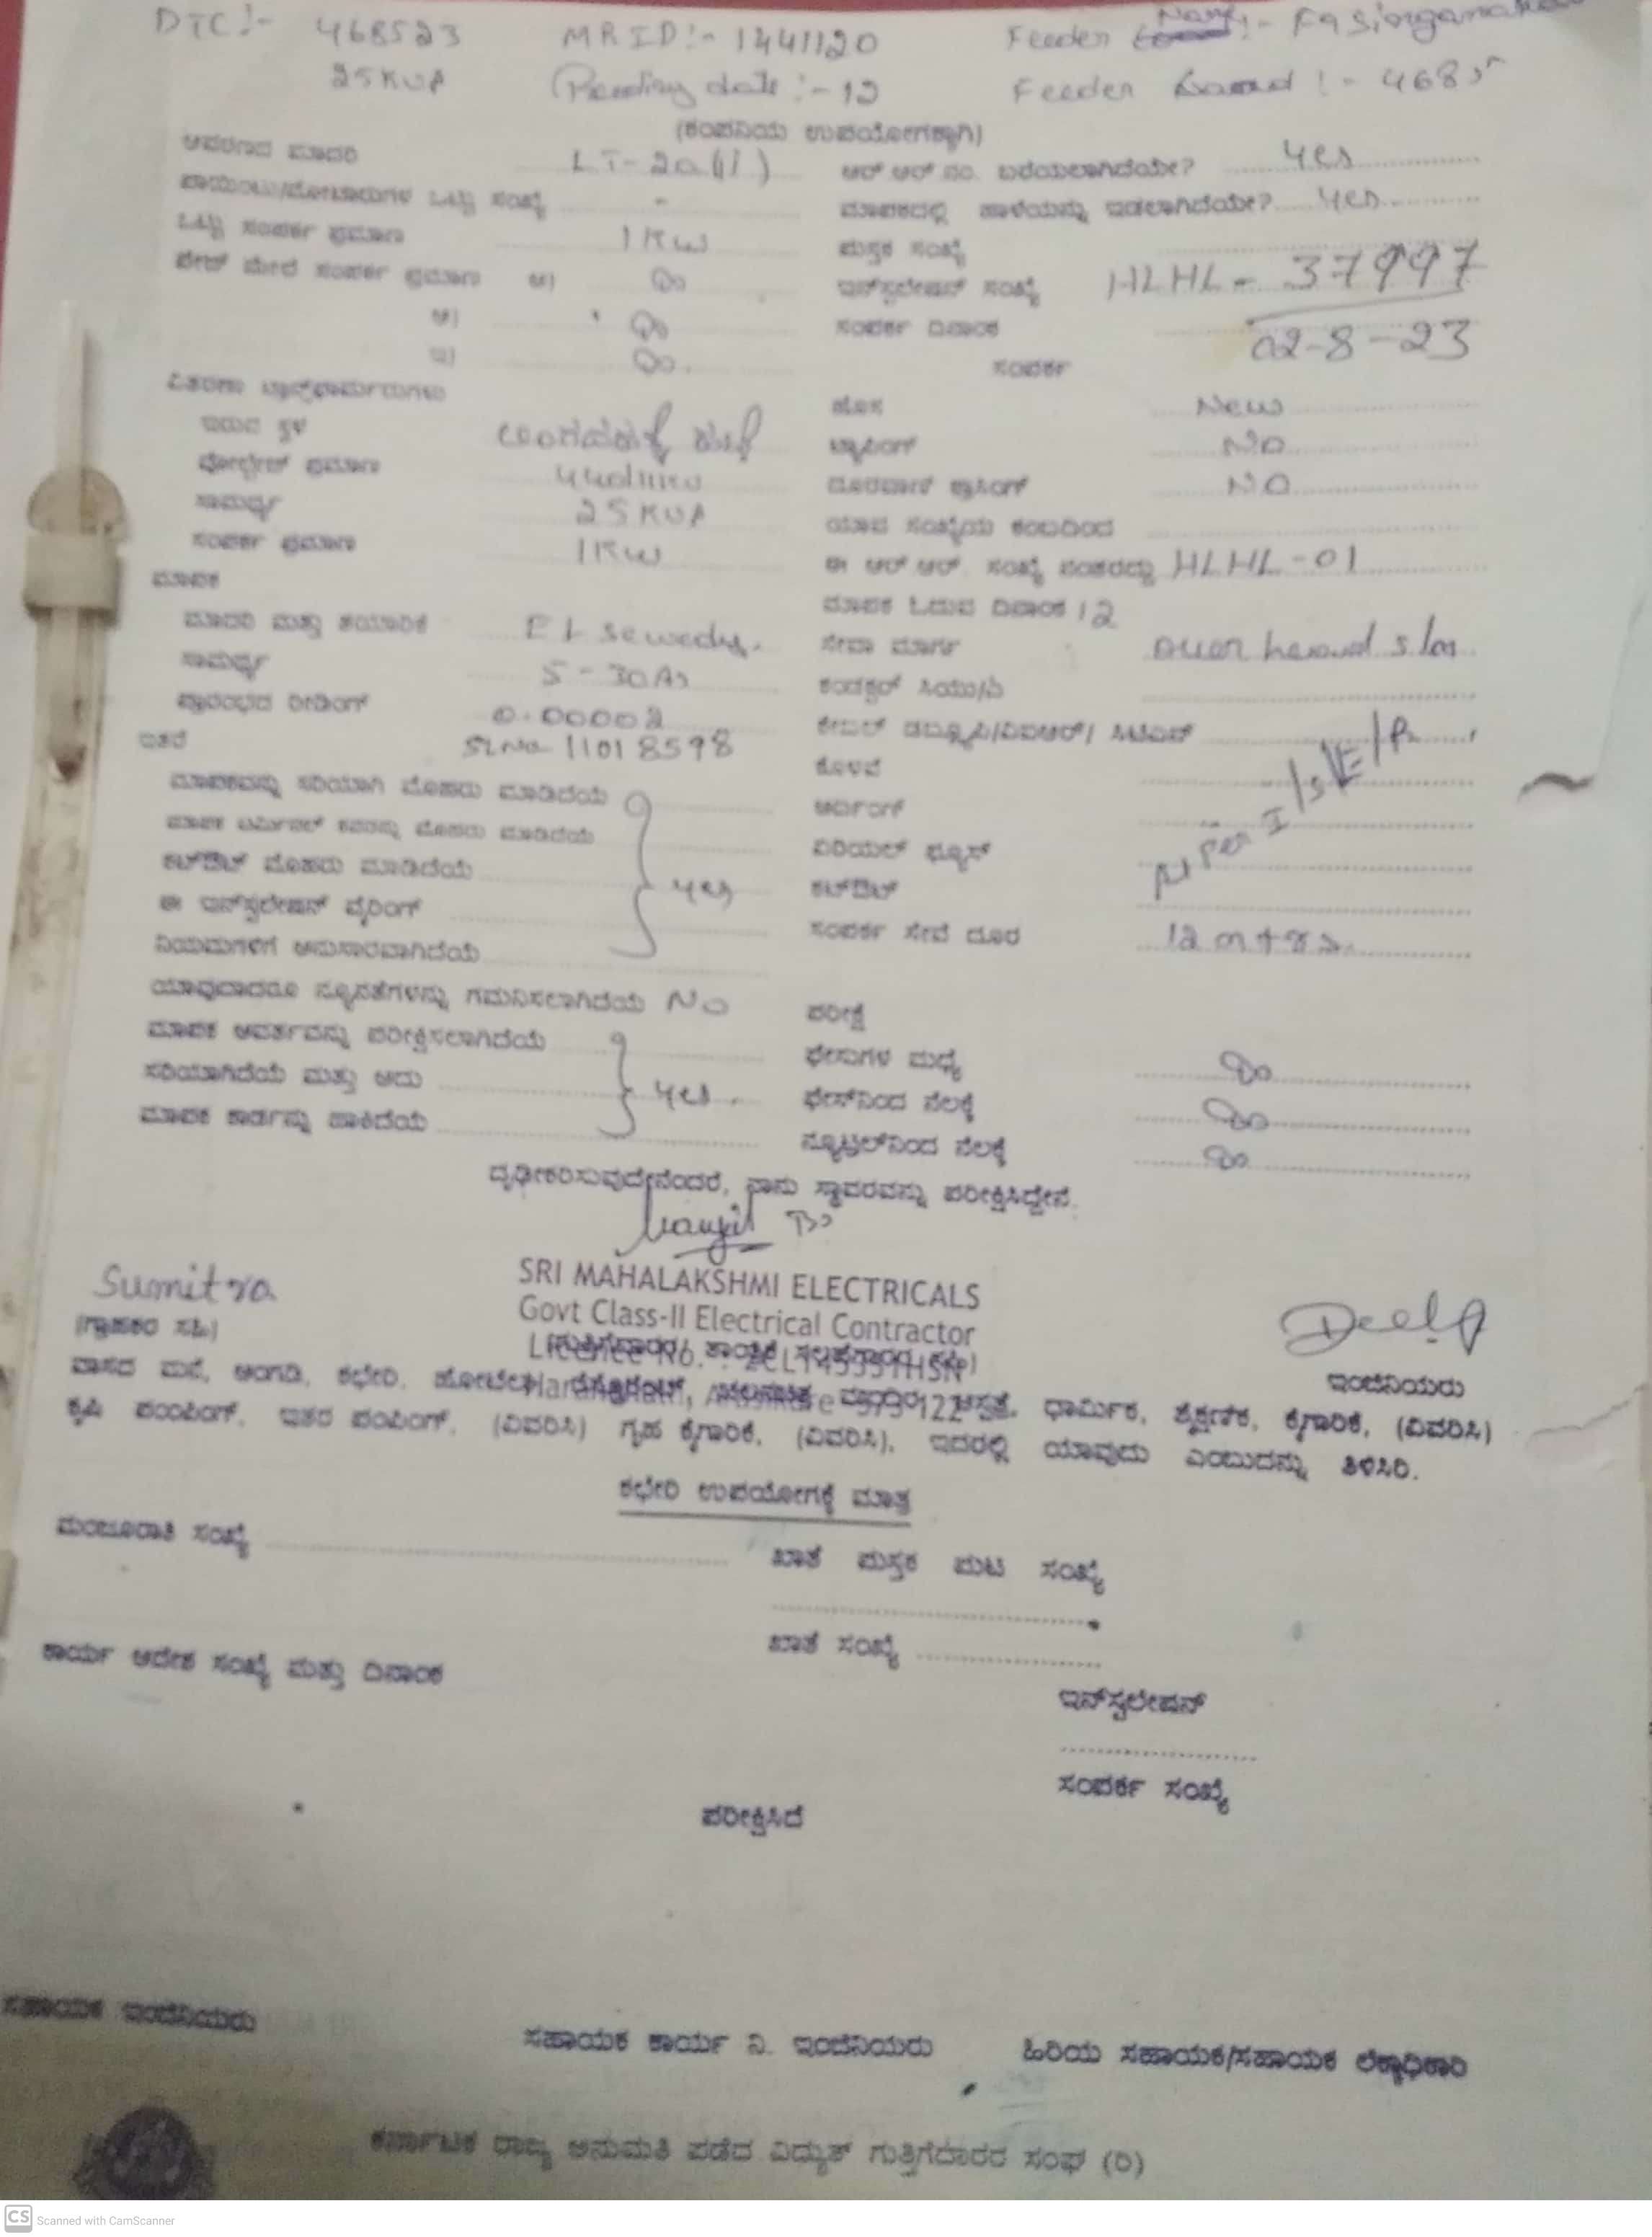 DTC:- 468523 MRID:- 1441120 Feeder Name:-
25KVA Reading date:-12 Feeder :- 4685
(ಕಂಪನಿಯ ಉಪಯೋಗಕ್ಕಾಗಿ)
ಆವರಣದ ಮಾದರಿ LT-2a(ii) ಆರ್.ಆರ್.ನಂ. ಬರೆಯಲಾಗಿದೆಯೇ? Yes
ಒಟ್ಟು ಸಂಖ್ಯೆ - ಮಾಪಕದಲ್ಲಿ ಹಾಳೆಯನ್ನು ಇಡಲಾಗಿದೆಯೇ? Yes
ಒಟ್ಟು ಸಂಪರ್ಕ ಪ್ರಮಾಣ 1KW ಪುಸ್ತಕ ಸಂಖ್ಯೆ
ಫೇಸ್ ಮೇಲೆ ಸಂಪರ್ಕ ಪ್ರಮಾಣ ಅ) ಇನ್‌ಸ್ಟಲೇಷನ್ ಸಂಖ್ಯೆ HLHL- 37997
ಆ) ಸಂಪರ್ಕ ದಿನಾಂಕ 02-8-23
ಇ) ಸಂಪರ್ಕ
ವಿತರಣಾ ಟ್ರಾನ್ಸ್‌ಫಾರ್ಮರುಗಳು ಹೊಸ New
ಇರುವ ಸ್ಥಳ ಟ್ಯಾಪಿಂಗ್ NO
ವೋಲ್ಟೇಜ್ ಪ್ರಮಾಣ ದೂರವಾಣಿ ಕ್ರಾಸಿಂಗ್ NO
ಸಾಮರ್ಥ್ಯ 25KVA ಯಾವ ಸಂಖ್ಯೆಯ ಕಂಬದಿಂದ
ಸಂಪರ್ಕ ಪ್ರಮಾಣ 1KW ಈ ಆರ್.ಆರ್. ಸಂಖ್ಯೆ ನಂತರದ್ದು HLHL-01
ಮಾಪಕ ಮಾಪಕ ಓದುವ ದಿನಾಂಕ 12
ಮಾದರಿ ಮತ್ತು ತಯಾರಿಕೆ El sewedy. ಸೇವಾ ಮಾರ್ಗ
ಸಾಮರ್ಥ್ಯ 5-30As ಕಂಡಕ್ಟರ್ ಸಿಯು/ಎ
ಪ್ರಾರಂಭದ ರೀಡಿಂಗ್ 0.00002 ಕೇಬಲ್ ಡಬ್ಲ್ಯೂಪಿ/ವಿಐಆರ್/
ಇತರೆ SLNo 11018598 ಕೊಳವೆ
ಮಾಪಕವನ್ನು ಸರಿಯಾಗಿ ಮೊಹರು ಮಾಡಿದೆಯೆ ಅರ್ಥಿಂಗ್
ಮಾಪಕ ಟರ್ಮಿನಲ್ ಕವರನ್ನು ಮೊಹರು ಮಾಡಿದೆಯೆ ಏರಿಯಲ್ ಫ್ಯೂಸ್
ಕಟ್‌ಔಟ್ ಮೊಹರು ಮಾಡಿದೆಯೆ Yes ಕಟ್‌ಔಟ್
ಈ ಇನ್‌ಸ್ಟಲೇಷನ್ ವೈರಿಂಗ್ ಸಂಪರ್ಕ ಸೇವೆ ದೂರ 12 mtrs.
ನಿಯಮಗಳಿಗೆ ಅನುಸಾರವಾಗಿದೆಯೆ
ಯಾವುದಾದರೂ ನ್ಯೂನತೆಗಳನ್ನು ಗಮನಿಸಲಾಗಿದೆಯೆ No ಪರೀಕ್ಷೆ
ಮಾಪಕ ಆವರ್ತವನ್ನು ಪರೀಕ್ಷಿಸಲಾಗಿದೆಯೆ ಫೇಸುಗಳ ಮಧ್ಯೆ
ಸರಿಯಾಗಿದೆಯೆ ಮತ್ತು ಅದು Yes. ಫೇಸ್‌ನಿಂದ ನೆಲಕ್ಕೆ
ಮಾಪಕ ಕಾರ್ಡನ್ನು ಹಾಕಿದೆಯೆ ನ್ಯೂಟ್ರಲ್‌ನಿಂದ ನೆಲಕ್ಕೆ
ದೃಢೀಕರಿಸುವುದೇನೆಂದರೆ, ನಾನು ಸ್ಥಾವರವನ್ನು ಪರೀಕ್ಷಿಸಿದ್ದೇನೆ.
Sumitra SRI MAHALAKSHMI ELECTRICALS
(ಗ್ರಾಹಕರ ಸಹಿ) Govt Class-II Electrical Contractor
Licence No. ಇಂಜಿನಿಯರು
ವಾಸದ ಮನೆ, ಅಂಗಡಿ, ಕಛೇರಿ, ಹೋಟೆಲ್ ಆಸ್ಪತ್ರೆ, ಧಾರ್ಮಿಕ, ಶೈಕ್ಷಣಿಕ, ಕೈಗಾರಿಕೆ, (ವಿವರಿಸಿ)
ಕೃಷಿ ಪಂಪಿಂಗ್, ಇತರ ಪಂಪಿಂಗ್, (ವಿವರಿಸಿ) ಗೃಹ ಕೈಗಾರಿಕೆ, (ವಿವರಿಸಿ), ಇದರಲ್ಲಿ ಯಾವುದು ಎಂಬುದನ್ನು ತಿಳಿಸಿರಿ.
ಕಛೇರಿ ಉಪಯೋಗಕ್ಕೆ ಮಾತ್ರ
ಮಂಜೂರಾತಿ ಸಂಖ್ಯೆ ಖಾತೆ ಪುಸ್ತಕ ಪುಟ ಸಂಖ್ಯೆ
ಖಾತೆ ಸಂಖ್ಯೆ
ಕಾರ್ಯ ಆದೇಶ ಸಂಖ್ಯೆ ಮತ್ತು ದಿನಾಂಕ
ಇನ್‌ಸ್ಟಲೇಷನ್
ಸಂಪರ್ಕ ಸಂಖ್ಯೆ
ಪರೀಕ್ಷಿಸಿದೆ
ಸಹಾಯಕ ಇಂಜಿನಿಯರು ಸಹಾಯಕ ಕಾರ್ಯ ನಿ. ಇಂಜಿನಿಯರು ಹಿರಿಯ ಸಹಾಯಕ/ಸಹಾಯಕ ಲೆಕ್ಕಾಧಿಕಾರಿ
ಕರ್ನಾಟಕ ರಾಜ್ಯ ಅನುಮತಿ ಪಡೆದ ವಿದ್ಯುತ್ ಗುತ್ತಿಗೆದಾರರ ಸಂಘ (ರಿ)
CS Scanned with CamScanner